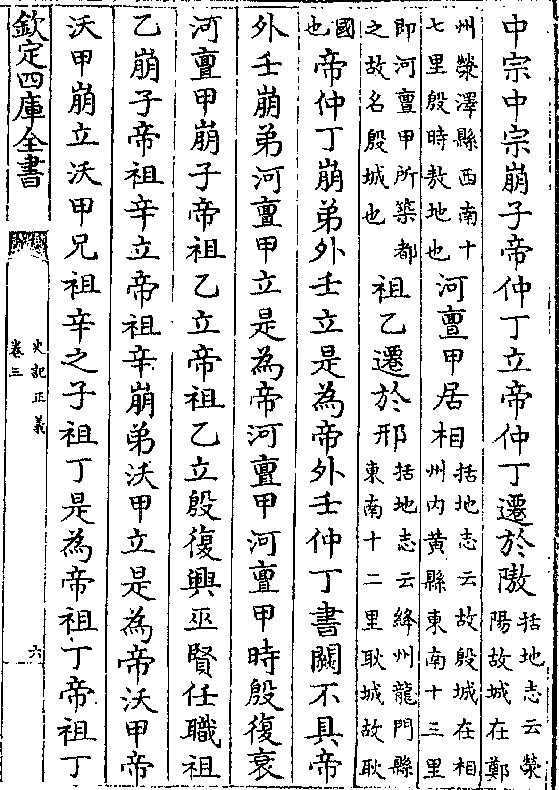 中宗中宗崩子帝仲丁立帝仲丁遷於隞括地志云滎陽故城在鄭
州滎澤縣西南十七里殷時敖地也河亶甲居相括地志云故殷城在相州內黃縣東南十三里
即河亶甲所築都之故名殷城也祖乙遷於邢括地志云絳州龍門縣東南十二里耿城故耿
國也帝仲丁崩弟外壬立是為帝外壬仲丁書闕不具帝
外壬崩弟河亶甲立是為帝河亶甲河亶甲時殷復衰
河亶甲崩子帝祖乙立帝祖乙立殷復興巫賢任職祖
乙崩子帝祖辛立帝祖辛崩弟沃甲立是為帝沃甲帝
沃甲崩立沃甲兄祖辛之子祖丁是為帝祖丁帝祖丁
欽定四庫全書
史記正義
卷三
六